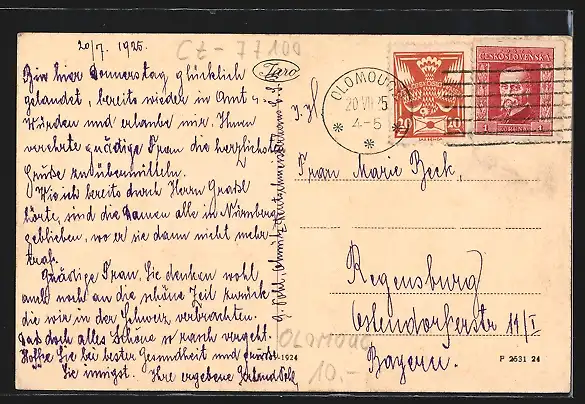 20/7. 1925.
Ct-77100
Bin hier Donnerstag glücklich
gelandet, bereits wieder in Amt u.
Würden und erlaube mir, Ihnen
verehrte gnädige Frau die herzlichsten
Grüße zu übermitteln.
Wie ich bereits durch Herrn Graßl
hörte, sind die Damen alle in Nürnberg
geblieben, wo er sie dann nicht mehr
traf.
Gnädige Frau, Sie denken wohl
auch noch an die schöne Zeit zurück
die wir in der Schweiz verbrachten.
Daß doch alles Schöne so rasch vergeht.
Hoffe Sie bei bester Gesundheit und grüßt
Sie innigst. Ihre ergebene
OLOMOUC
20 VII 25
4-5
20 20
ČESKOSLOVENSKÁ
1 KORUNA 1
Frau Marie Beck,
Regensburg
Ostendorferstr 11/I
Bayern.
Olomouc
10.-
1924
P 2631 24